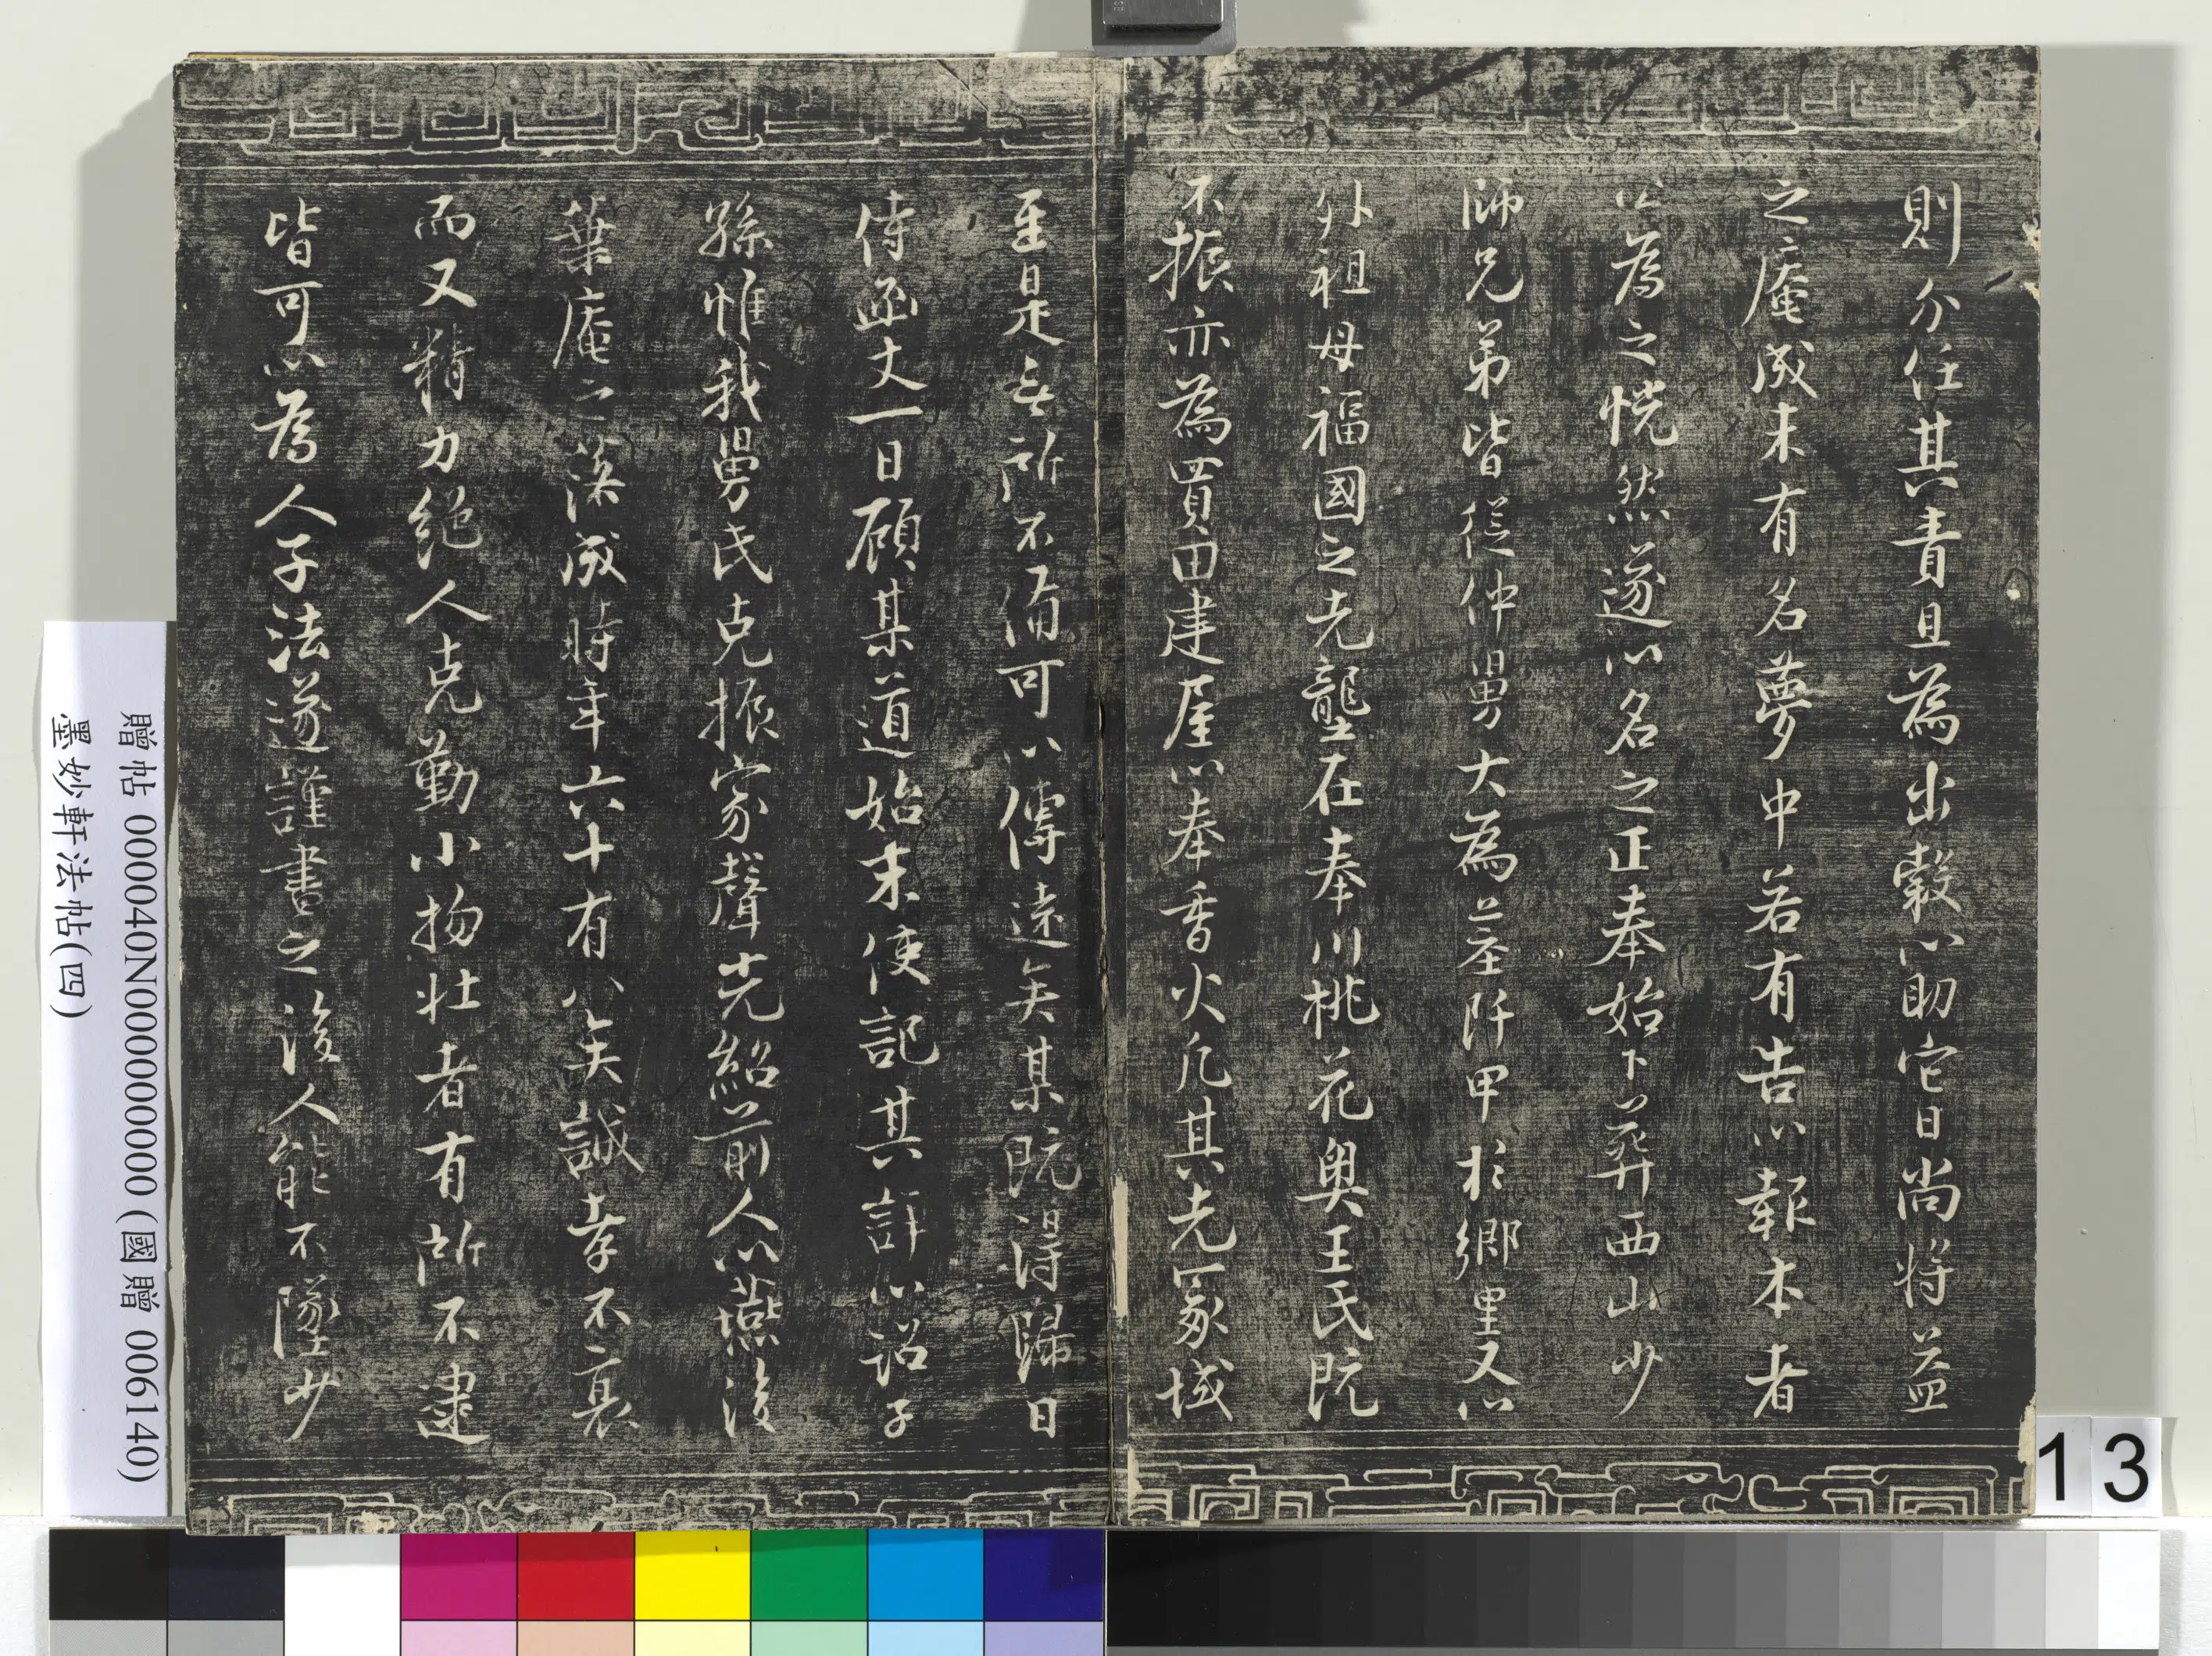 則分任其責且為出穀以助它日尚將益
之庵成未有名夢中若有告以報本者
公為之恍然遂以名之正奉始下葬西山少
師兄弟皆從仲舅大為莹阡甲於鄉里又以
外祖母福國之先壟在奉川桃花奧王氏既
不振亦為買田建屋以奉香火凡其先冢域
至是無所不備可以傳遠矣某既得歸日
侍函丈一日顧某道始末使記其詳以詔子
孫惟我舅氏克振家聲光紹前人以燕後
葉庵之落成時年六十有八矣誠孝不衰
而又精力絕人克勤小物壯者有所不逮
皆可以為人子法遂謹書之後人能不墜少
贈帖 000040N000000000 (國贈 006140)
墨妙軒法帖(四)
13